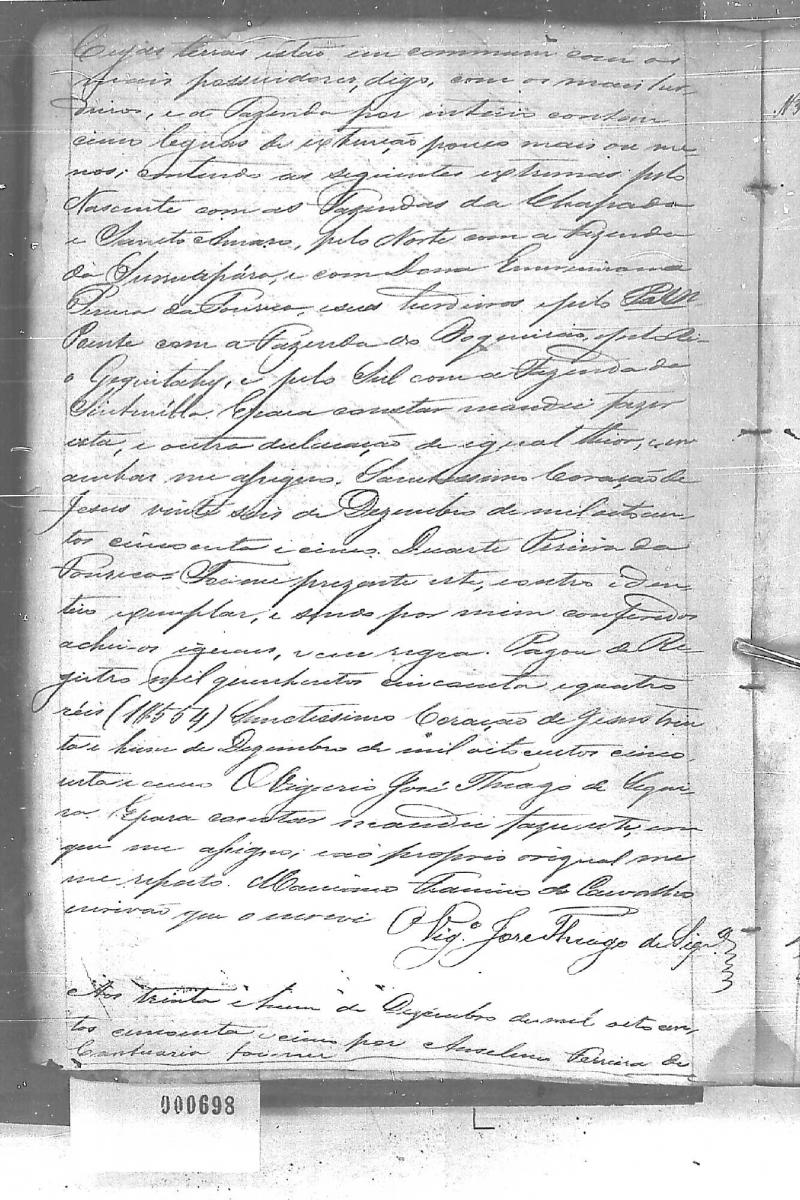 Cujas terras estão em commum com os
mais possuidores, digo, com os mais her-
deiros, e a Fazenda por inteiro contem
cinco leguas de extenção pouco mais ou me
nos; contendo as seguintes extremas: pelo
Nascente com as Fazendas da Chapada
e Sancto Amaro, pelo Norte com a Fazenda
da Sussuapára, e com Dona
Pereira da Fonseca, e seus herdeiros e pelo
Poente com a Fazenda do Boqueirão,
o Gequitahy, e pelo Sul com a Fazenda da
E para constar mandei fazer
esta, e outra declaração de egual theor, e em
ambas me assigno. Sanctissimo Coração de
Jesus vinte seis de Dezembro de mil oito cen-
tos cincoenta e cinco. Duarte Pereira da
Fonseca. Foi me prezente este, e outro iden
tico exemplar, e sendo por mim conferidos
achei-os iguaes, e em regra. Pagou de Re-
gistro mil quinhentos cincoenta e quatro
réis (1$554) Sanctissimo Coração de Jesus trin
ta e hum de Dezembro de mil oito centos cinco
enta e cinco O Vigario José Thiago de Siquei
ra. E para constar mandei fazer este, em
que me assigno, e ao proprio original me
me reporto. Francisco de Carvalho
escrivão que o escrevi
O Vig.º José Thiago de Siq.ª
Aos trinta e hum de Dezembro de mil oito cen
tos cincoenta e cinco por Anselmo Ferreira de
Cantuaria foi me
000698
N